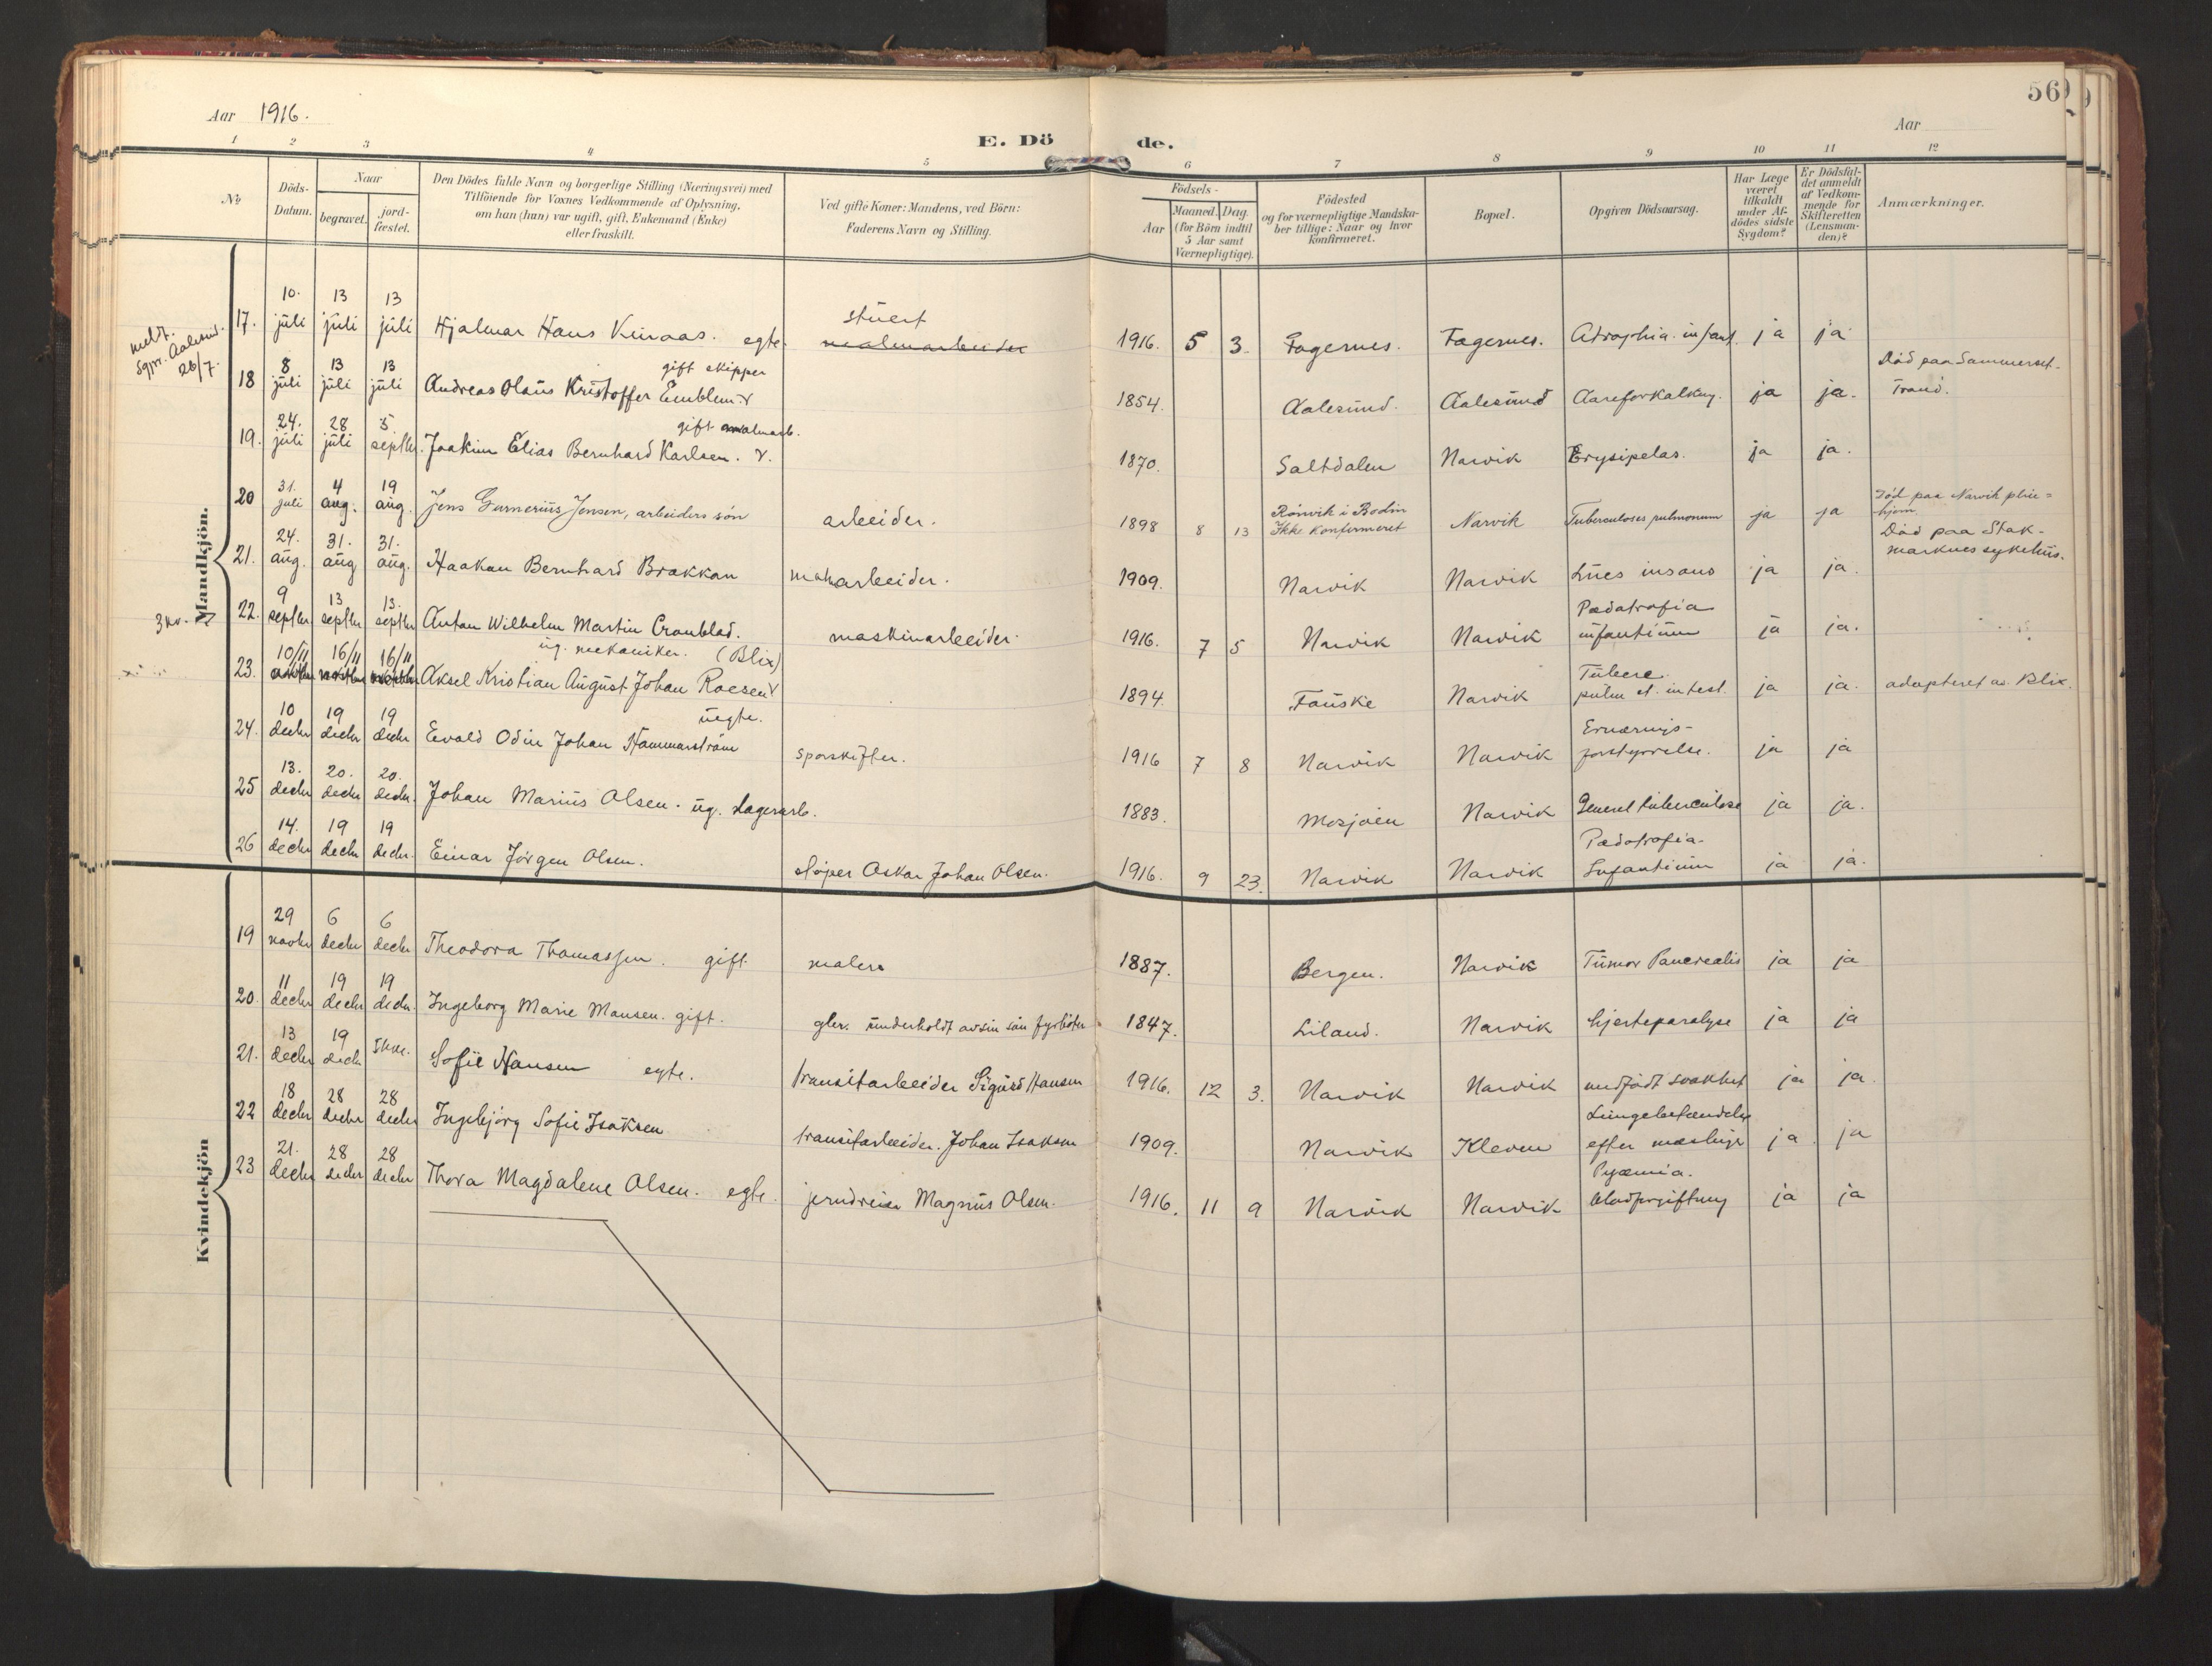 Aar 1916.
56
Aar
E. Döde.
1 2 3 4 5 6 7 8 9 10 11 12
No
Döds-Datum.
Naar
begravet.
jord-fæstet.
Den Dödes fulde Navn og borgerlige Stilling (Næringsvei) med
Tilföiende for Voxnes Vedkommende af Oplysning,
om han (hun) var ugift, gift, Enkemand (Enke)
eller fraskilt.
Ved gifte Koner: Mandens, ved Börn:
Faderens Navn og Stilling.
Födsels-
Aar
Maaned. Dag.
(for Börn indtil
5 Aar samt
Værnepligtige).
Födested
og for værnepligtige Mandska-
ber tillige: Naar og hvor
konfirmeret.
Bopæl.
Opgiven Dödsaarsag.
Har Læge
været
tilkaldt
under Af-
dödes sidste
Sygdom?
Er Dödsfal-
det anmeldt
af Vedkom-
mende for
Skifteretten
(Lensman-
den)?
Anmærkninger.
Mandkjön.
meldt. Sgpr. Aalesund. 26/7.
17. 10. juli 13 juli 13 juli Hjalmar Hans Kuraas. egte. stuert malmarbeider 1916. 5 3. Fagernes. Fagernes. Atrophia. infant. ja ja
18 8 juli 13 juli 13 juli Andreas Olaus Kristoffer Emblem. gift skipper 1854. Aalesund. Aalesund Aareforkalkng. ja ja. Död paa Sammerset-
19. 24. juli 28 juli 5 septbr. Joakim Elias Bernhard Karlsen. gift malmarb. 1870. Saltdalen Narvik Erysipelas. ja ja.
20 31. juli 4 aug. 19 aug. Jens Gunnerius Jensen, arbeiders sön arbeider. 1898 8 13 Rönvik i Bodin Ikke konfirmeret Narvik Tuberculoses pulmonum ja ja Död paa Narvik pleie=hjem
21. 24. aug. 31. aug 31. aug. Haakon Bernhard Brakkan malmarbeider. 1909. Narvik Narvik Lues ja ja. Död paa Stok-marknes sykehus.
3 kv.
22. 9 septbr 13 septbr 13. septbr Anton Wilhelm Martin Cronblad. maskinarbeider. 1916. 7 5 Narvik Narvik Pædatrofia infantium ja ja.
23. 10/11 16/11 16/11 Aksel Kristian August Johan Roesen ug. mekaniker. (Blix) 1894. Fauske Narvik Tuberc. pulm et. intest. ja ja. adopteret av Blix.
24. 10 decbr 19 decbr 19 decbr Evald Odin Johan Hammarström uegte. sporskifter. 1916 7 8 Narvik Narvik Ernærings-forstyrrelse. ja ja
25 13. decbr 20. decbr 20. decbr. Johan Marius Olsen. ug. Lagerarb. 1883. Mosjöen Narvik Generel tuberculose ja ja.
26 14. decbr 19 decbr 19 decbr. Einar Jörgen Olsen. slöper Oskar Johan Olsen. 1916. 9 23. Narvik Narvik Pædatrofia Infantium ja ja.
Kvindekjön
19 29 novbr 6 decbr 6 decbr Theodora Thomassen. gift. maler 1887. Bergen. Narvik Tumor Pancreatis ja ja
20. 11 decbr 19 decbr 19 decbr. Ingeborg Marie Monsen. gift. gbr. underholdt av sin sön fyrböter 1847. Liland. Narvik hjerteparalyse ja ja
21. 13 decbr 19 decbr Ikke. Sofie Hansen egte. transitarbeider Sigurd Hansen 1916. 12 3. Narvik Narvik medfödt svakhet ja ja.
22 18 decbr 28 decbr 28 decbr Ingebjörg Sofie Isaksen transitarbeider. Johan Isaksen 1909. Narvik Kleven Lungebetændelse efter meslinger ja. ja
23 21. decbr 28 decbr 28 decbr Thora Magdalene Olsen. egte. jerndreier Magnus Olsen. 1916. 11 9 Narvik Narvik Pyæmia. blodforgiftning ja ja